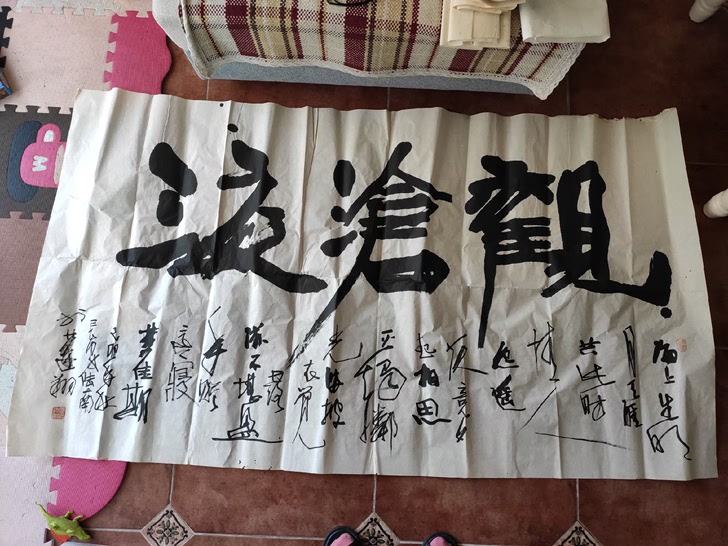 觀滄浪
海上生明
月天涯
共此時
情人
怨遙
夜竟夕
起相思
滅燭憐
光滿披
衣覺
露
滋不堪盈
手贈
還寢
夢佳期